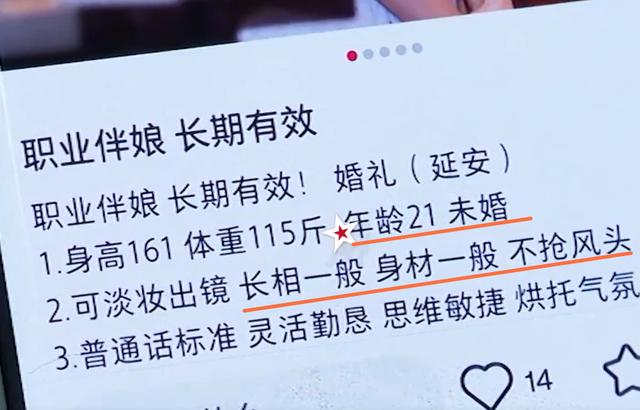 职业伴娘 长期有效
职业伴娘 长期有效! 婚礼（延安）
1.身高161 体重115斤 年龄21 未婚
2.可淡妆出镜 长相一般 身材一般 不抢风头
3.普通话标准 灵活勤恳 思维敏捷 烘托气氛
14